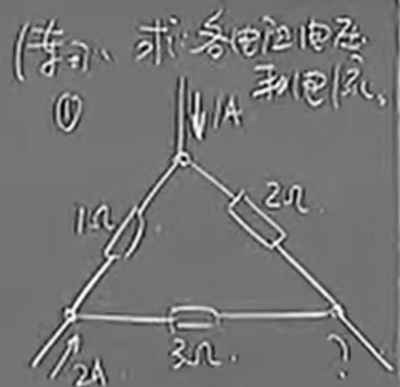 求:各电阻电压
和电流。
①
1A
1Ω
2Ω
3Ω
2A
?